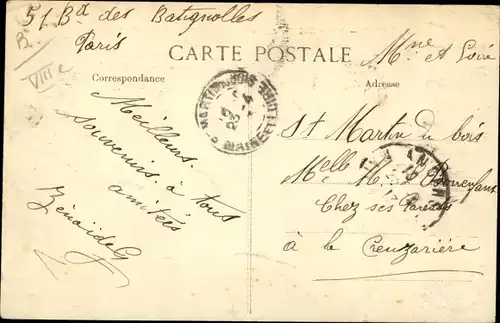 51 Bd des Batignolles
Paris
VIII e
CARTE POSTALE
Correspondance
Adresse
Mne et Loire
Meilleurs
souvenirs à tous
amitiés
St Martin du bois
Melle M.
Chez ses Parents
à la Creuzarière